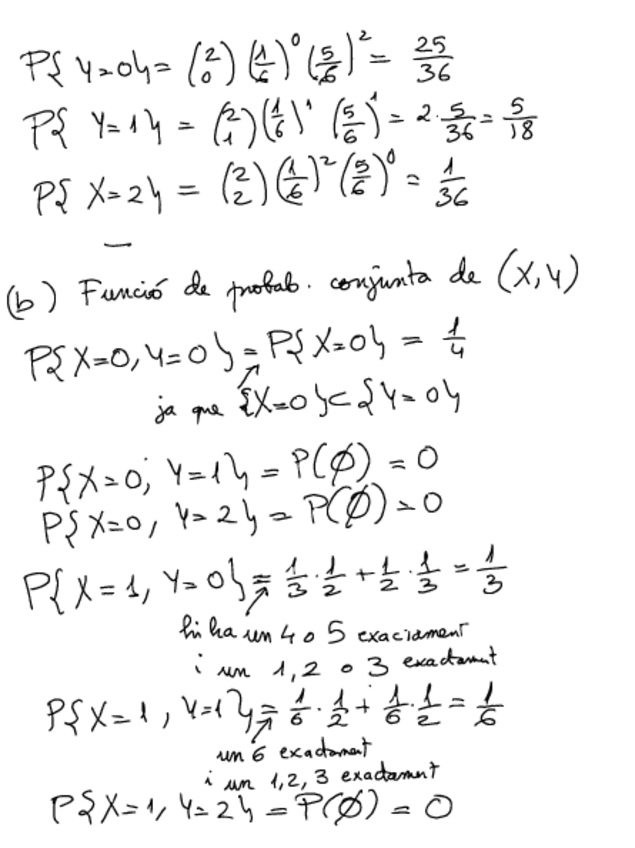 P{Y=0} = (2 0) (1/6)^0 (5/6)^2 = 25/36
P{Y=1} = (2 1) (1/6)^1 (5/6)^1 = 2·5/36 = 5/18
P{X=2} = (2 2) (1/6)^2 (5/6)^0 = 1/36
(b) Funció de probab. conjunta de (X,Y)
P{X=0, Y=0} = P{X=0} = 1/4
ja que {X=0} ⊂ {Y=0}
P{X=0, Y=1} = P(∅) = 0
P{X=0, Y=2} = P(∅) = 0
P{X=1, Y=0} = 1/3 · 1/2 + 1/2 · 1/3 = 1/3
hi ha un 4 o 5 exactament
i un 1,2 o 3 exactament
P{X=1, Y=1} = 1/6 · 1/2 + 1/6 · 1/2 = 1/6
un 6 exactament
i un 1,2,3 exactament
P{X=1, Y=2} = P(∅) = 0